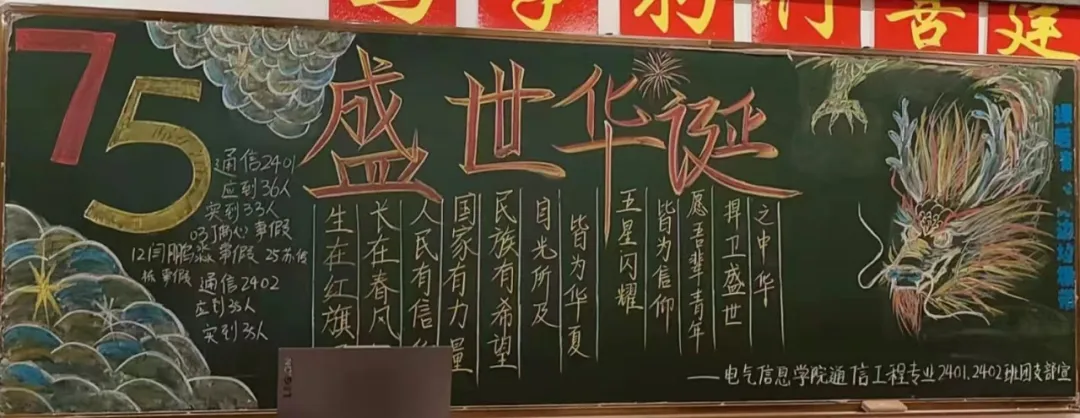 75
盛世华诞
通信2401
应到36人
实到33人
事假
12闫鹏淼 事假 25苏
事假
通信2402
应到35人
实到35人
生在红旗
长在春风
人民有信
国家有力量
民族有希望
目光所及
皆为华夏
五星闪耀
皆为信仰
愿吾辈青年
捍卫盛世
之中华
——电气信息学院通信工程专业2401、2402班团支部宣